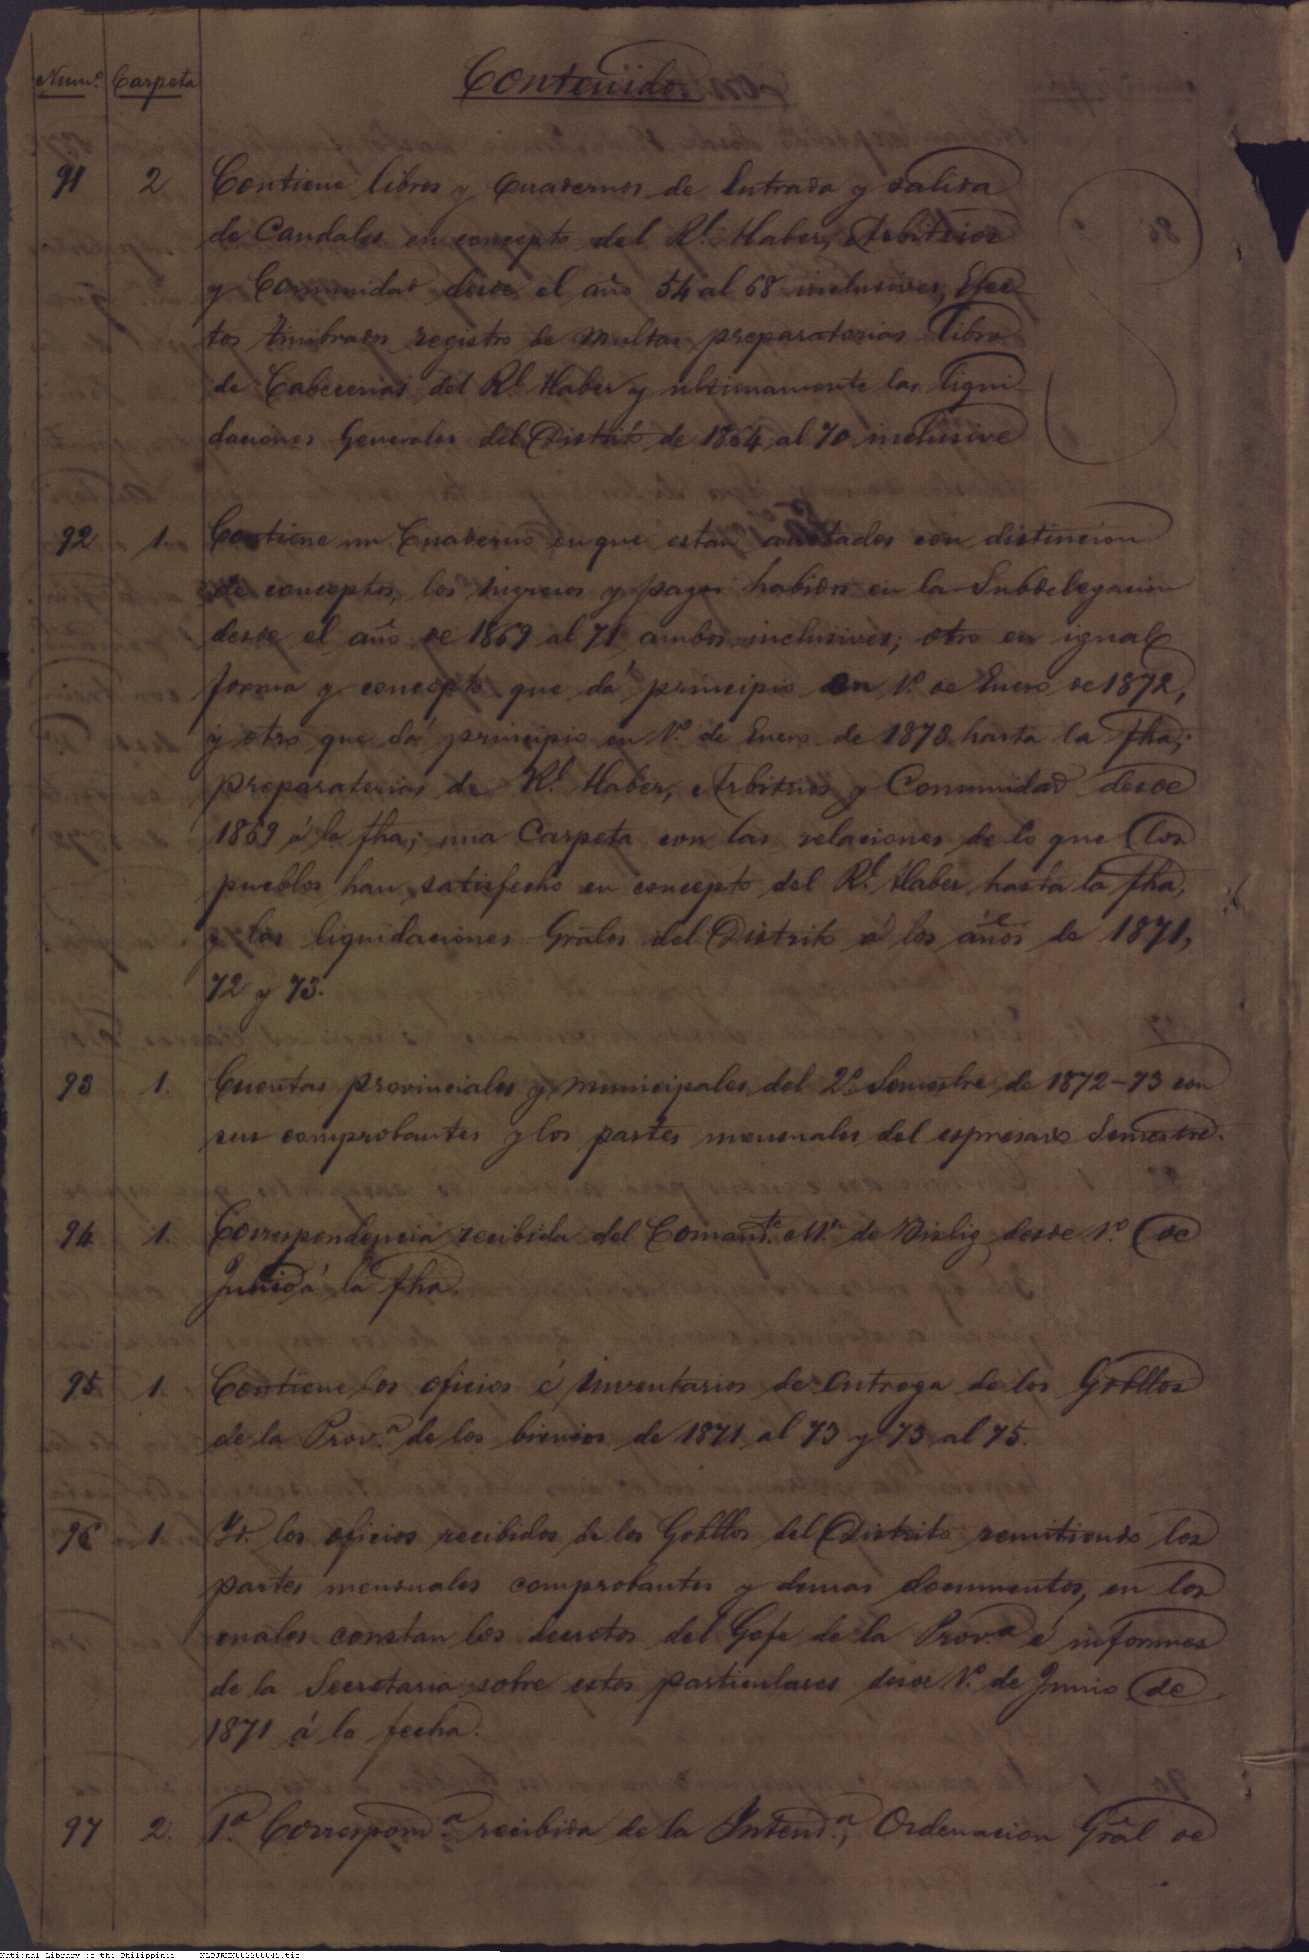 Num.º Carpeta Contenido
91 2 Contiene libros y Cuadernos de Entrada y salida
de Caudales en concepto del Rl. Haber, Arbitrios
y Comunidad desde el año 54 al 68 inclusives, Efec
tos timbrados registro de multas preparatorias libro
de Cabecerias del Rl. Haber y ultimamente las liqui
daciones Generales del Distrito de 1864 al 70 inclusive
92 1. Contiene un Cuaderno en que estan anotados con distincion
de conceptos, los ingresos y pagos habidos en la Subdelegacion
desde el año de 1869 al 71 ambos inclusives; otro en igual
forma y concepto que dá principio en 1.º de Enero de 1872,
y otro que dá principio en 1.º de Enero de 1873 hasta la fha;
preparatorias de Rl. Haber, Arbitrios y Comunidad desde
1869 á la fha; una Carpeta con las relaciones de lo que los
pueblos han satisfecho en concepto del Rl. Haber hasta la fha,
y las liquidaciones Grales del Distrito á los años de 1871,
72 y 73.
93 1. Cuentas provinciales y municipales del 2.º Semestre de 1872-73 con
sus comprobantes y los partes mensuales del espresado Semestre.
94 1. Correspondencia recibida del Comandte. M.r de Bislig desde 1.º de
Junio á la fha.
95 1. Contiene los oficios é inventarios de entrega de los Gobllos
de la Prov.a de los bienios de 1871 al 73 y 73 al 75.
96 1. Yd. los oficios recibidos de los Gobllos del Distrito remitiendo los
partes mensuales comprobantes y demas documentos, en los
cuales constan los decretos del Gefe de la Prov.a é informes
de la Secretaria sobre estos particulares desde 1.º de Junio de
1871 á la fecha.
97 2. 1.a Correspond.a recibida de la Intend.a, Ordenacion Gral de
National Library of the Philippines